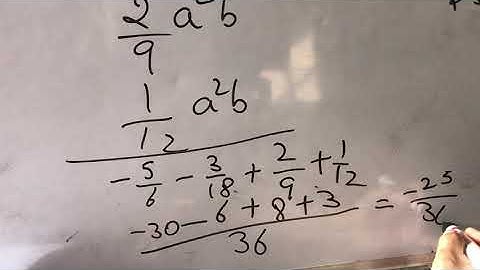 2/9 a²b
1/12 a²b
-5/6 - 3/18 + 2/9 + 1/12
-30 - 6 + 8 + 3 / 36 = -25/36